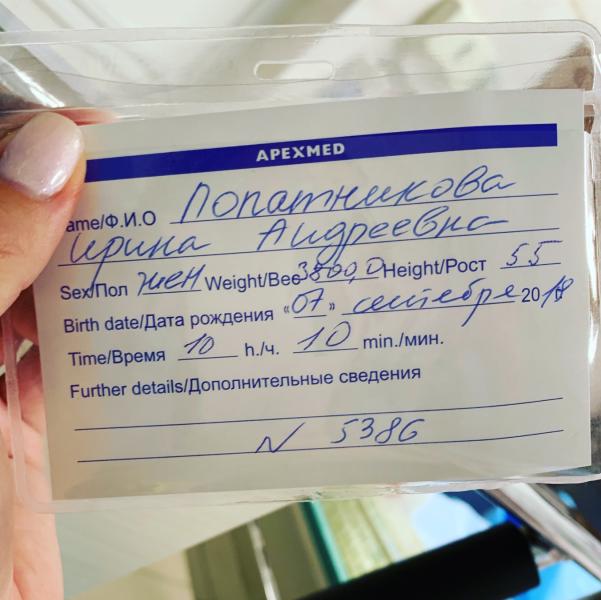 APEXMED
ame/Ф.И.О Лопатникова
Ирина Андреевна
Sex/Пол жен Weight/Вес 3800,0 Height/Рост 55
Birth date/Дата рождения «07» сентября 2018
Time/Время 10 h./ч. 10 min./мин.
Further details/Дополнительные сведения
N 5386